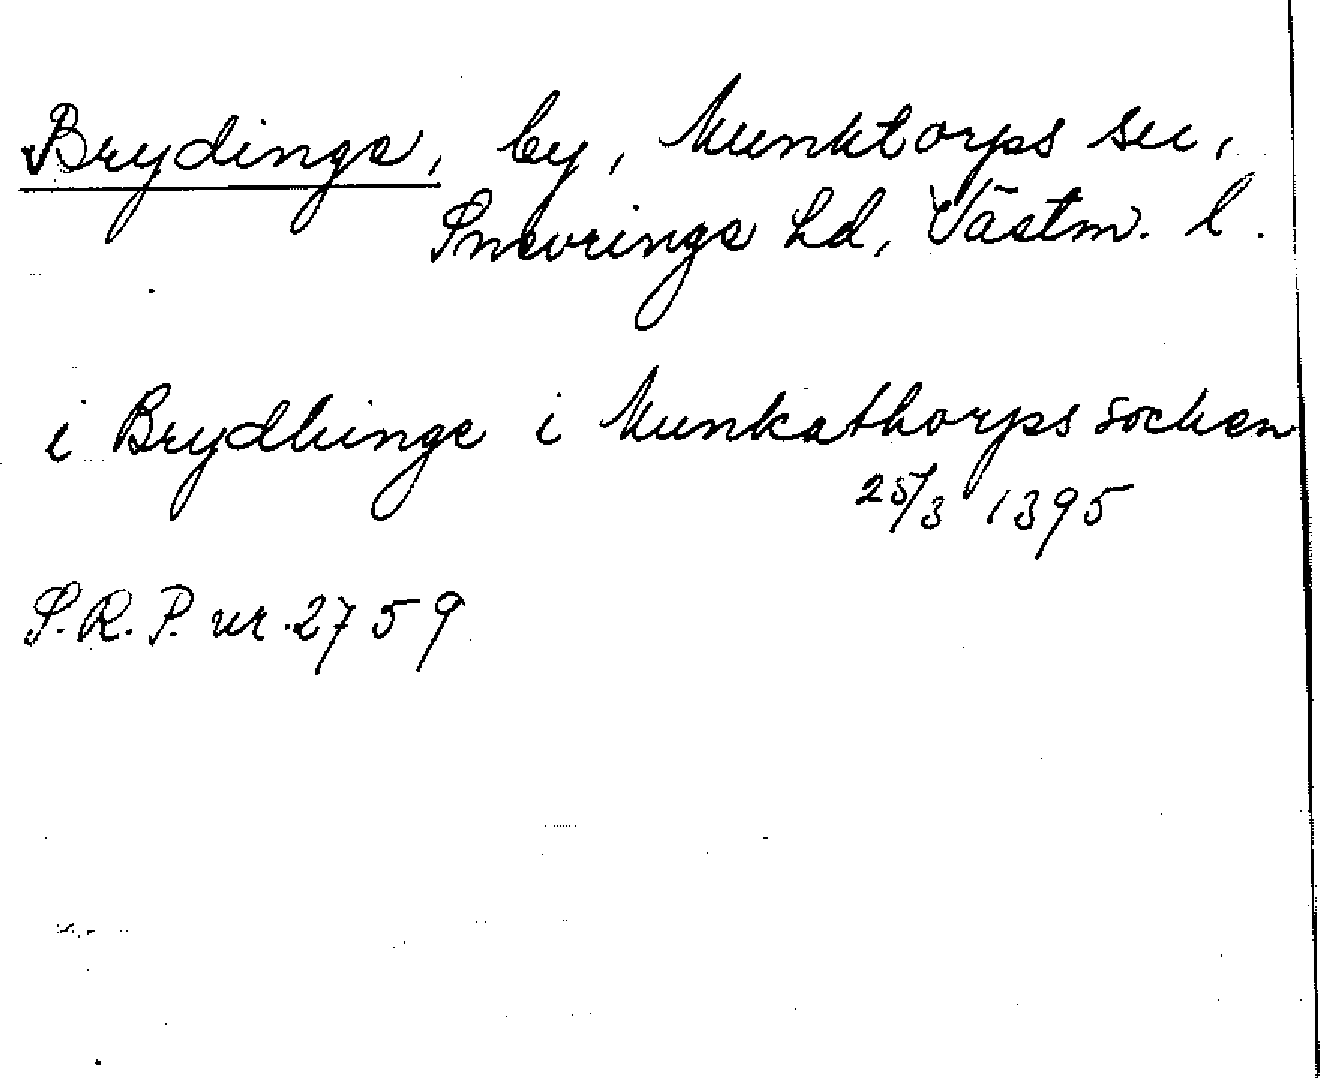 Brydinge, by, Munktorps sn,
Snevringe hd, Västm. l.
i Brydhinge i Munkathorps socken
25/3 1395
S.R.P. nr. 2759